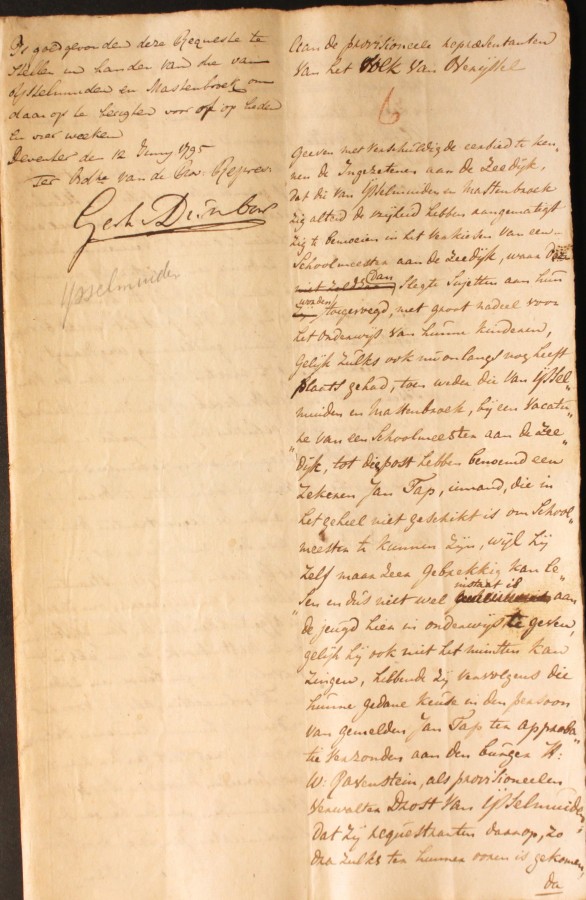 Is goedgevonden deze Requeste te
stellen in handen van die van
IJsselmuiden en Mastenbroek om
daar op te berigten voor of op heden
en vier weeken
Deventer den 12 Juny 1795
Ter Ordre van de Pros: Repres:
Gerh Dumbar
IJsselmuiden
Aan de provisioneele repræsentanten
van het Volk van Overijssel
6
Geeven met verschuldigde eerbied te ken„
nen de Ingezetenen aan de Zeedijk,
dat die van IJsselmuiden en Mastenbroek
zig altoos de vrijheid hebben aangematigt
zig te bemoeien in het verkiezen van een
Schoolmeester aan de Zeedijk, waar door
dan slegte Sujetten aan hun
worden toegevoegd, met groot nadeel voor
het onderwijs van hunne kinderen,
gelijk zulks ook nu onlangs nog heeft
plaats gehad, toen weder die van IJssel„
muiden en Mastenbroek, bij een vacatu„
re van een Schoolmeester aan de Zee„
„dijk, tot die post hebben benoemd een
zekeren Jan Tap, iemand, die in
het geheel niet geschikt is om School„
meester te kunnen zijn, wijl hij
zelf maar zeer gebrekkig kan le„
„sen en dus niet wel instaat is aan
de jeugd hier in onderwijs te geven,
gelijk hij ook niet het minsten kan
zingen, hebbende zij vervolgens die
hunne gedane keuse in den persoon
van gemelden Jan Tap ter approba„
tie verzonden aan den burger H:
W: Ravenstein, als provisioneelen
Verwalter Drost van IJsselmuiden,
dat zij requestranten daarop, zo
dra zulks ter hunner ooren is gekomen,
da